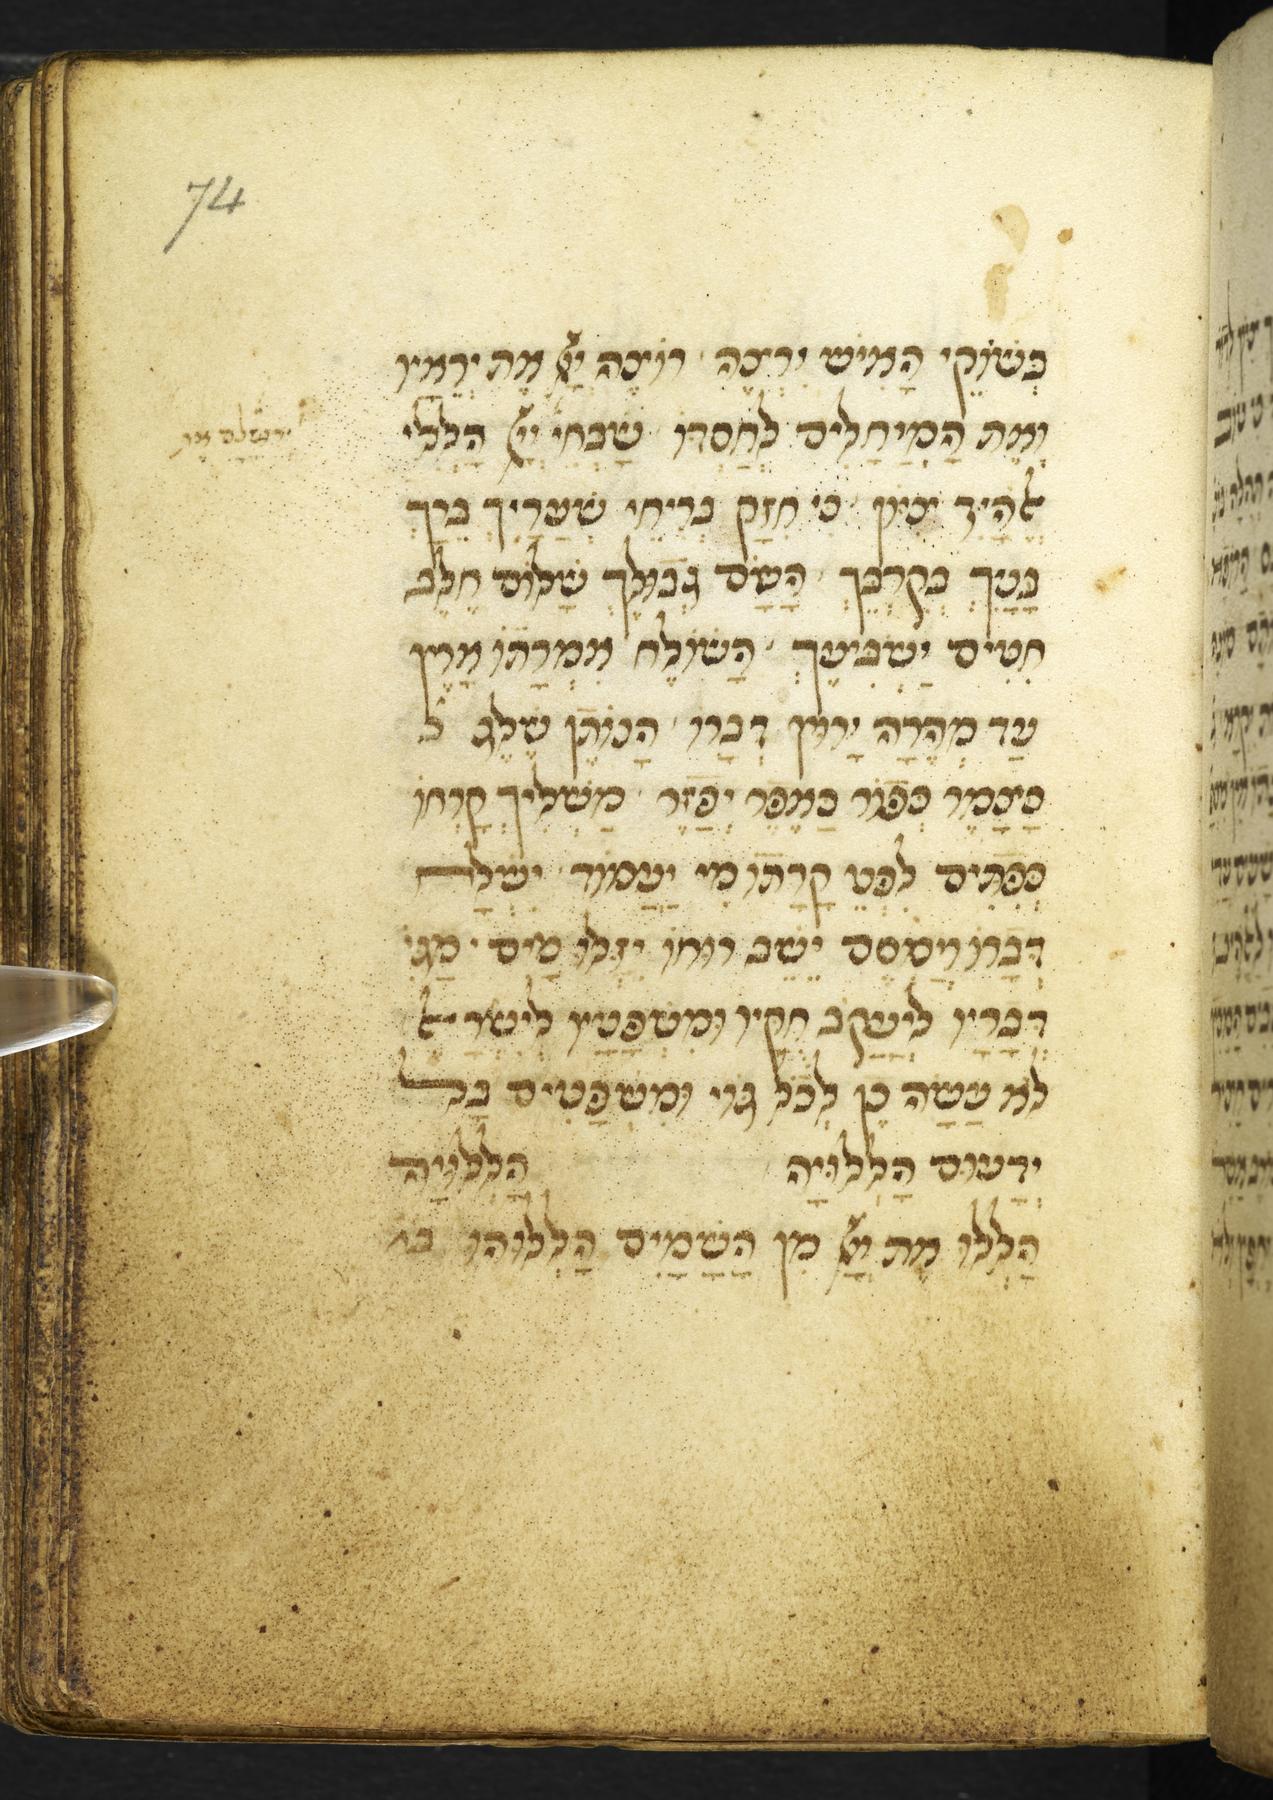 74
בְּשׁוֹקֵי הָאִישׁ יִרְצֶה רוֹצֶה יְיָ אֶת יְרֵאָיו
וְאֶת הַמְיַחֲלִים לְחַסְדּוֹ שַׁבְּחִי יְיָ הַלְלִי
ירשלם את
אֱלֹהַיִךְ צִיּוֹן כִּי חִזַּק בְּרִיחֵי שְׁעָרָיִךְ בֵּרַךְ
בָּנַיִךְ בְּקִרְבֵּךְ הַשָּׂם גְּבוּלֵךְ שָׁלוֹם חֵלֶב
חִטִּים יַשְׂבִּיעֵךְ הַשּׁוֹלֵחַ אִמְרָתוֹ אָרֶץ
עַד מְהֵרָה יָרוּץ דְּבָרוֹ הַנּוֹתֵן שֶׁלֶג כ
כַּצָּמֶר כְּפוֹר כָּאֵפֶר יְפַזֵּר מַשְׁלִיךְ קַרְחוֹ
כְפִתִּים לִפְנֵי קָרָתוֹ מִי יַעֲמוֹד יִשְׁלַח
דְּבָרוֹ וְיַמְסֵם יַשֵּׁב רוּחוֹ יִזְּלוּ מָיִם מַגִּי
דְּבָרָיו לְיַעֲקֹב חֻקָּיו וּמִשְׁפָּטָיו לְיִשְׂרָאֵל
לֹא עָשָׂה כֵן לְכָל גּוֹי וּמִשְׁפָּטִים בַּל
יְדָעוּם הַלְלוּיָהּ הַלְלוּיָהּ
הַלְלוּ אֶת יְיָ מִן הַשָּׁמַיִם הַלְלוּהוּ במ